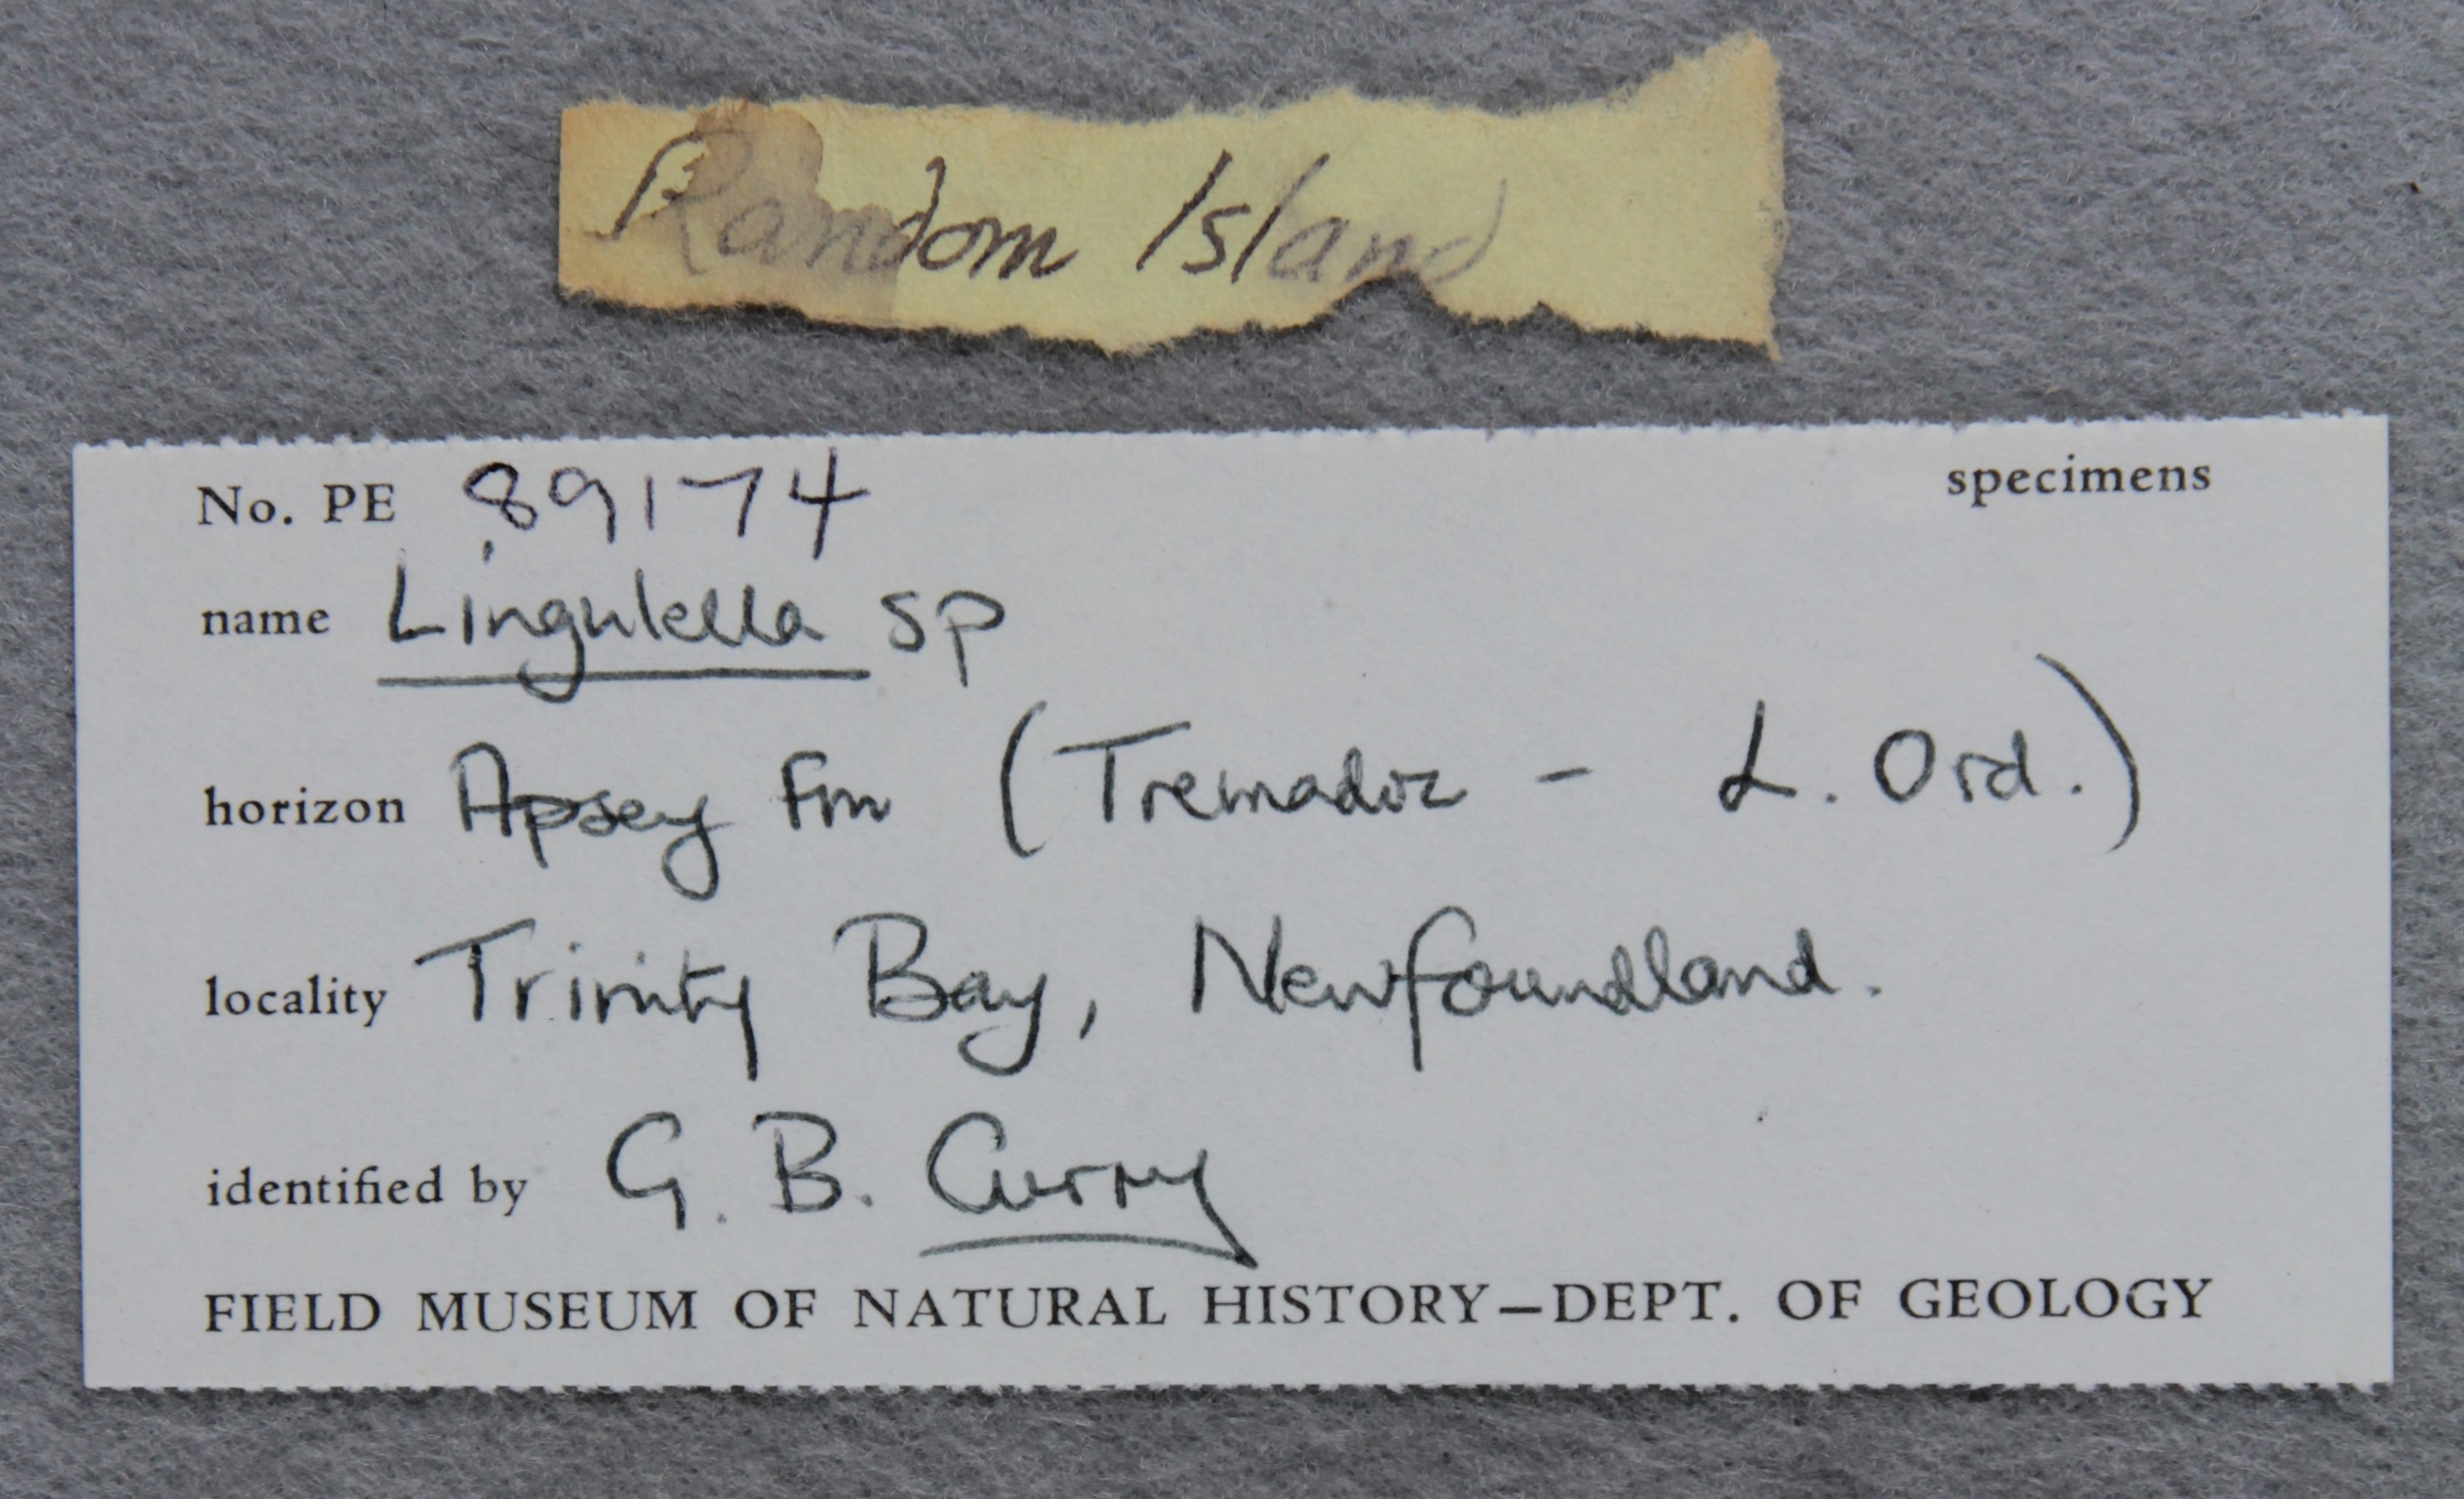 Random Island
No. PE 89174 specimens
name Lingulella sp
horizon Apsey Fm (Tremadoc - L. Ord.)
locality Trinity Bay, Newfoundland.
identified by G. B. Curry
FIELD MUSEUM OF NATURAL HISTORY–DEPT. OF GEOLOGY